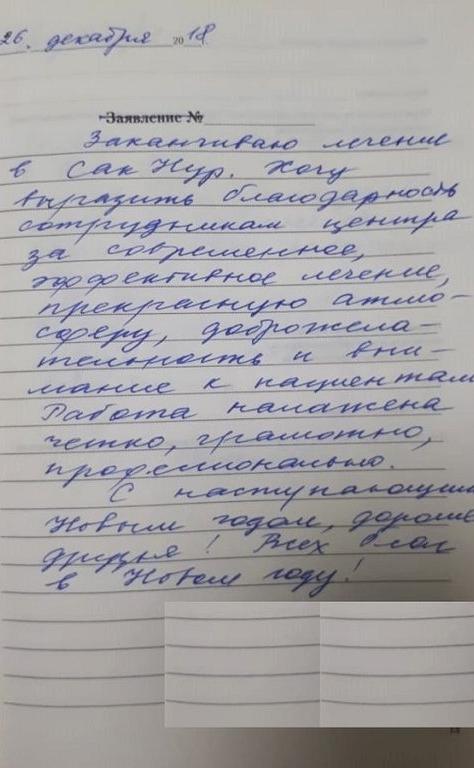 26. декабря 2018
Заявление №
Заканчиваю лечение
в Сак Нур. Хочу
выразить благодарность
сотрудникам центра
за современное,
эффективное лечение,
прекрасную атмо-
сферу, доброжела-
тельность и вни-
мание к пациентам
Работа налажена
четко, грамотно,
профессионально.
С наступающим
Новым годом, дорогие
друзья! Всех благ
в Новом году!